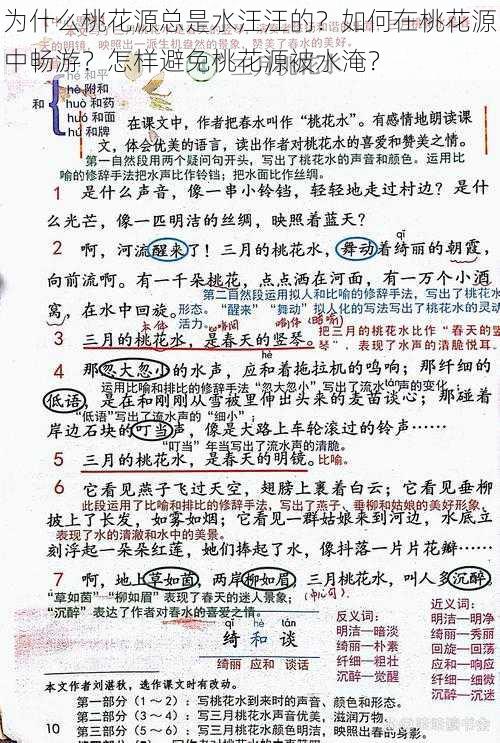 为什么桃花源总是水汪汪的？如何在桃花源
中畅游？怎样避免桃花源被水淹？
明镜，映照出一派生机盎然的景象，赞美了春水。
hé 和平
hè 附和
和 huó 和药
huò 和面
hú 和牌
在课文中，作者把春水叫作“桃花水”。有感情地朗读课
文，体会优美的语言，读出作者对桃花水的喜爱和赞美之情。
第一自然段用两个疑问句开头，写出了桃花水的声音和颜色。运用比
喻的修辞手法把水声比作铃铛；把水面比作丝绸。
1 是什么声音，像一串小铃铛，轻轻地走过村边？是什
么光芒，像一匹明洁的丝绸，映照着蓝天？
qǐ
2 啊，河流醒来了！三月的桃花水，舞动着绮丽的朝霞，
向前流啊。有一千朵桃花，点点洒在河面，有一万个小酒
第二自然段运用拟人和比喻的修辞手法，写出了桃花水
窝，在水中回旋。
形态。“醒来”“舞动”拟人化的写法写出了桃花水的灵动
活力。
本体 喻词 喻体(暗喻)
3 三月的桃花水，是春天的竖琴。
把三月的桃花水比作“春天的竖
琴”，表现了水声的清脆悦耳。
hè
4 那忽大忽小的水声，应和着拖拉机的鸣响；那纤细的
运用比喻和排比的修辞手法“忽大忽小”，写出了流水声的变化；
低语，是在和刚刚从雪被里伸出头来的麦苗谈心；那碰着
“低语”写出了流水声的“细小”；
岸边石块的叮当声，像是大路上车轮滚过的铃声……
“叮当”年当写出了流水声的清脆。
5 三月的桃花水，是春天的明镜。比喻。
6 它看见燕子飞过天空，翅膀上裹着白云；它看见垂柳
此段运用了比喻和排比的修辞手法，写出了燕子、垂柳和姑娘的美好形象，
披上了长发，如雾如烟；它看见一群姑娘来到河边，水底立
表现了水的清澈和水中的美景。
刻浮起一朵朵红莲，她们捧起了水，像抖落一片片花瓣……
7 啊，地上草如茵，两岸柳如眉，三月桃花水，叫人多沉醉。
“草如茵”“柳如眉”表现了春天的迷人景象；
(中心句).
“沉醉”表达了作者对春水的喜爱之情。
qǐ hè tán
绮 和 谈
绮丽 应和 谈话
反义词：
明洁—暗淡
绮丽—朴素
纤细—粗壮
沉醉—清醒
近义词：
明洁—明净
绮丽—秀丽
回旋—回荡
应和—响应
纤细—细微
沉醉—沉迷
本文作者刘湛秋，选作课文时有改动。
第一部分（1～2）：写桃花水到来时的声音、颜色和形态。
第二部分（3～4）：写三月桃花水声音优美、滋润万物。
第三部分（5～6）：写三月桃花水颜色明洁，映照出春的身影。
10